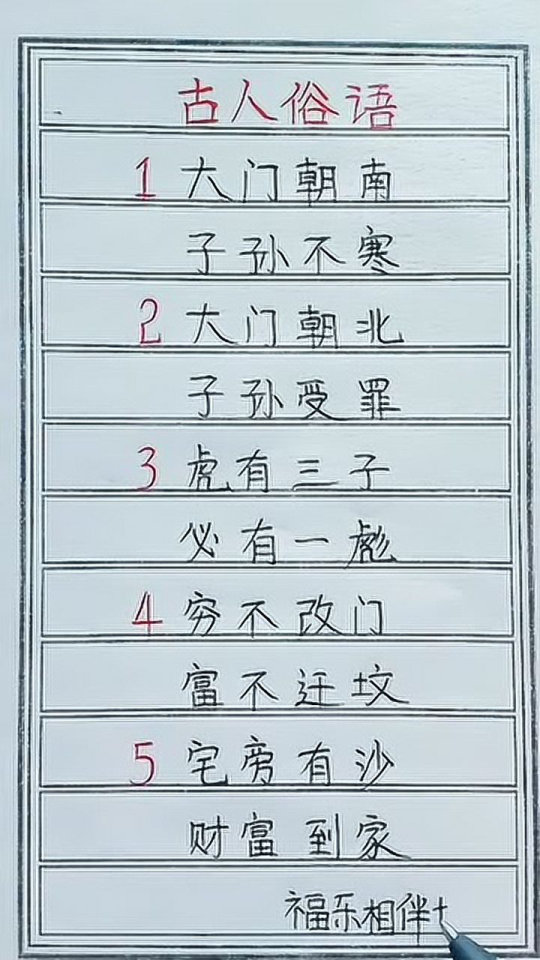 古人俗语
1 大门朝南
子孙不寒
2 大门朝北
子孙受罪
3 虎有三子
必有一彪
4 穷不改门
富不迁坟
5 宅旁有沙
财富到家
福乐相伴十